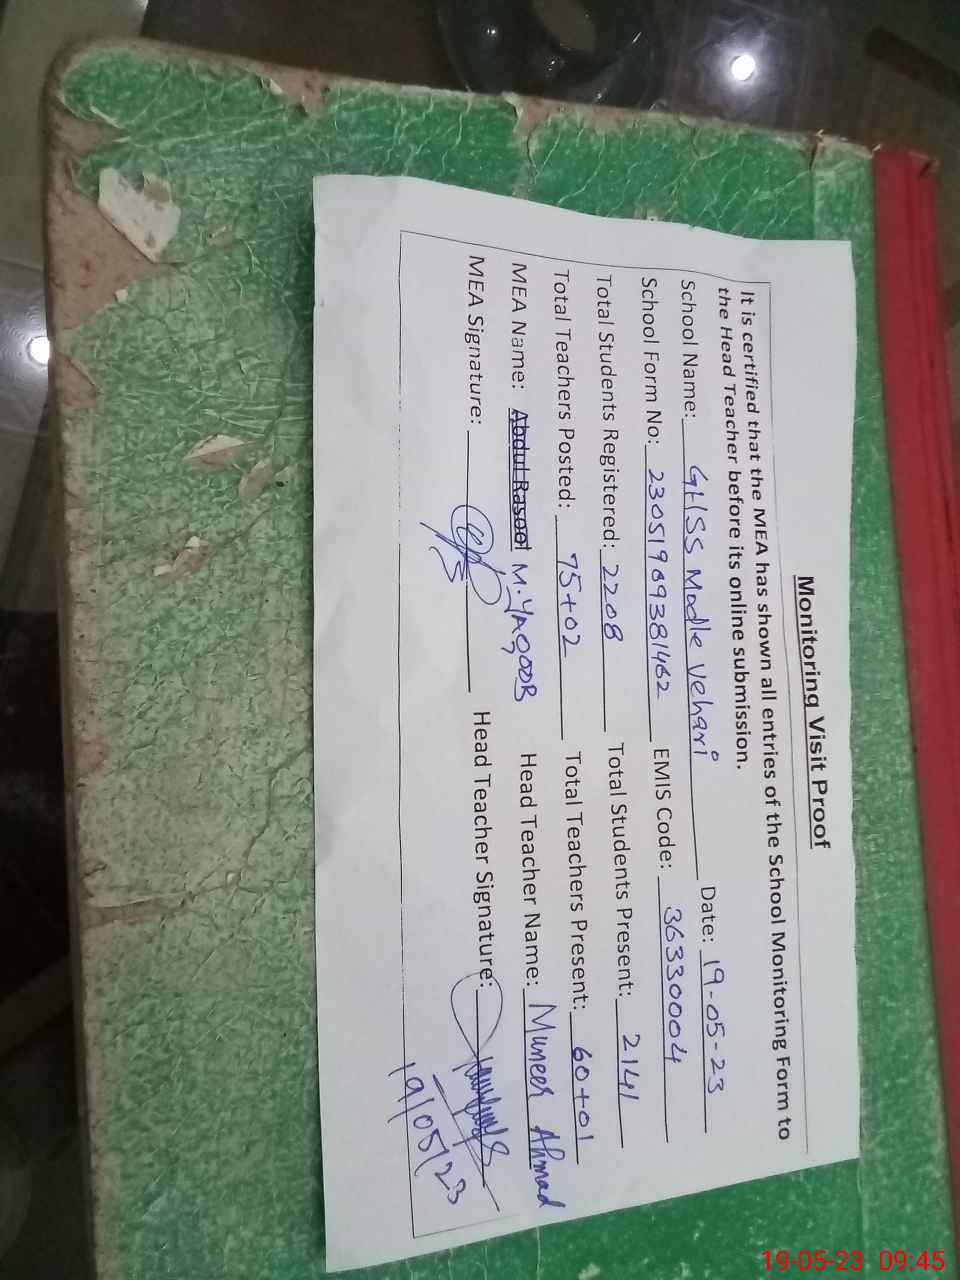 Monitoring Visit Proof
It is certified that the MEA has shown all entries of the School Monitoring Form to
the Head Teacher before its online submission.
School Name: GHSS Modle Vehari Date: 19-05-23
School Form No: 23051909381462 EMIS Code: 36330004
Total Students Registered: 2208 Total Students Present: 2141
Total Teachers Posted: 75+02 Total Teachers Present: 60+01
MEA Name: Abdul Rasool M.YAQOOB Head Teacher Name: Muneer Ahmad
MEA Signature: Head Teacher Signature:
19/05/23
19-05-23 09:45